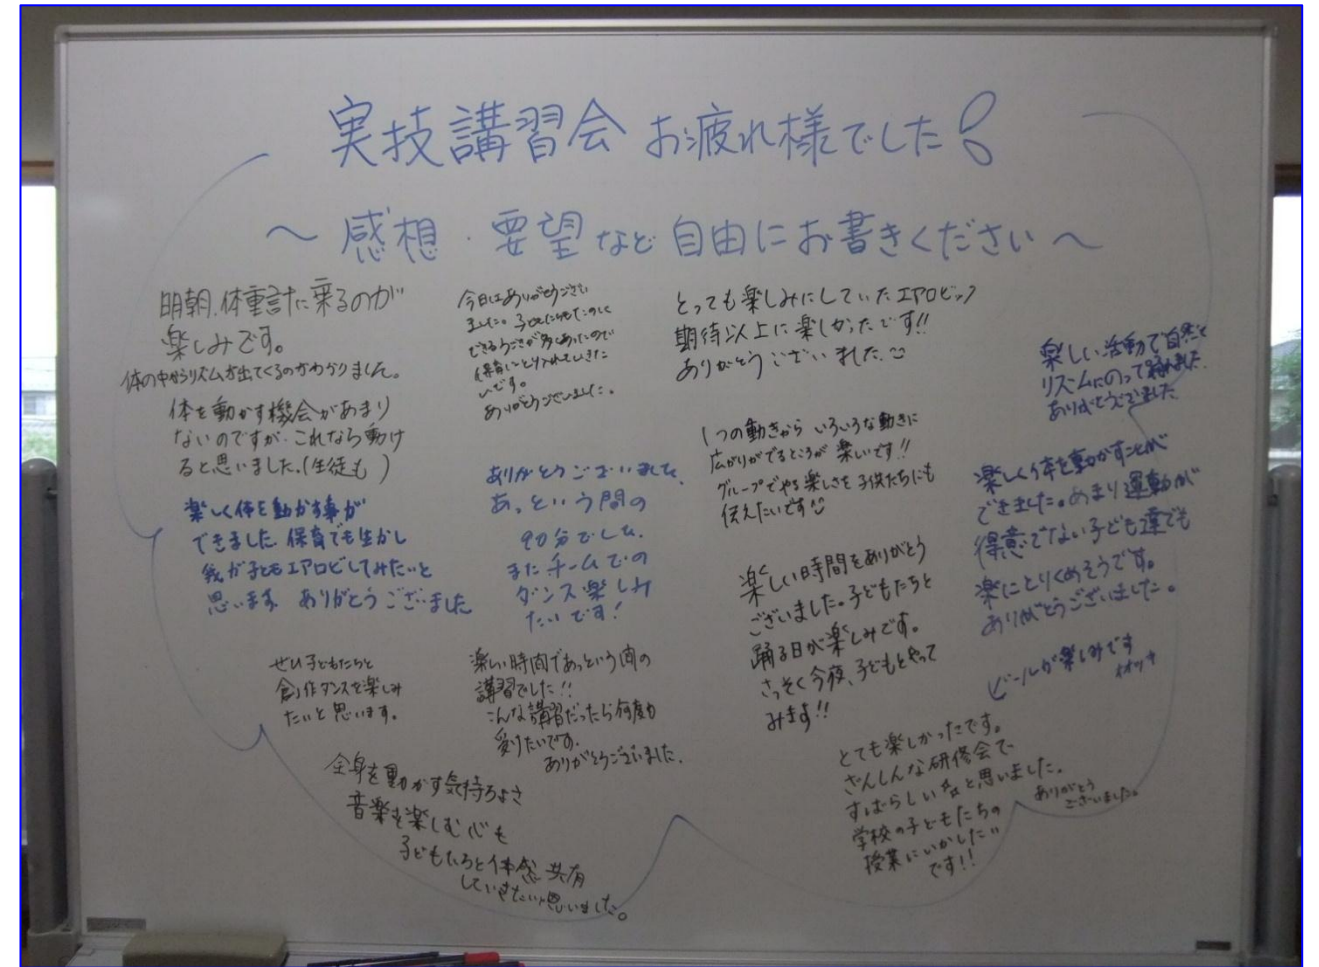 実技講習会 お疲れ様でした!
～ 感想・要望など自由にお書きください ～
明朝、体重計に乗るのが
楽しみです。
体の中からリズムが出てくるのがわかりません。
体を動かす機会があまり
ないのですが、これなら動け
ると思いました。(生徒も)
楽しく体を動かす事が
できました。保育でも生かし
我が子ともエアロビしてみたいと
思います。ありがとうございました
ぜひ子どもたちと
創作ダンスを楽しみ
たいと思います。
全身を動かす気持ちよさ
音楽を楽しむ心を
子どもたちと体感 共有
していきたいと思いました。
今日はありがとうござい
ました。子どもたちもたのしく
できるうごきが多くあったので
保育にとり入れていきた
いです。
ありがとうございました。
ありがとうございました。
あっという間の
90分でした。
またチームでの
ダンス楽しみ
たいです!
楽しい時間であっという間の
講習でした!!
こんな講習だったら何度も
受けたいです。
ありがとうございました。
とっても楽しみにしていたエアロビック
期待以上に楽しかったです!!
ありがとうございました。
1つの動きから いろいろな動きに
広がりがでるところが 楽しいです!!
グループでやる楽しさを子供たちにも
伝えたいです
楽しい時間をありがとう
ございました。子どもたちと
踊る日が楽しみです。
さっそく今夜、子どもとやって
みます!!
とても楽しかったです。
ざんしんな研修会で、
すばらしい と思いました。
学校の子どもたちの
授業にいかしたい
です!!
ありがとう
ございました。
楽しい活動で自然と
リズムにのって踊れました。
ありがとうございました
楽しく体を動かすことが
できました。あまり運動が
得意でない子ども達でも
楽にとりくめそうです。
ありがとうございました。
ビールが楽しみです